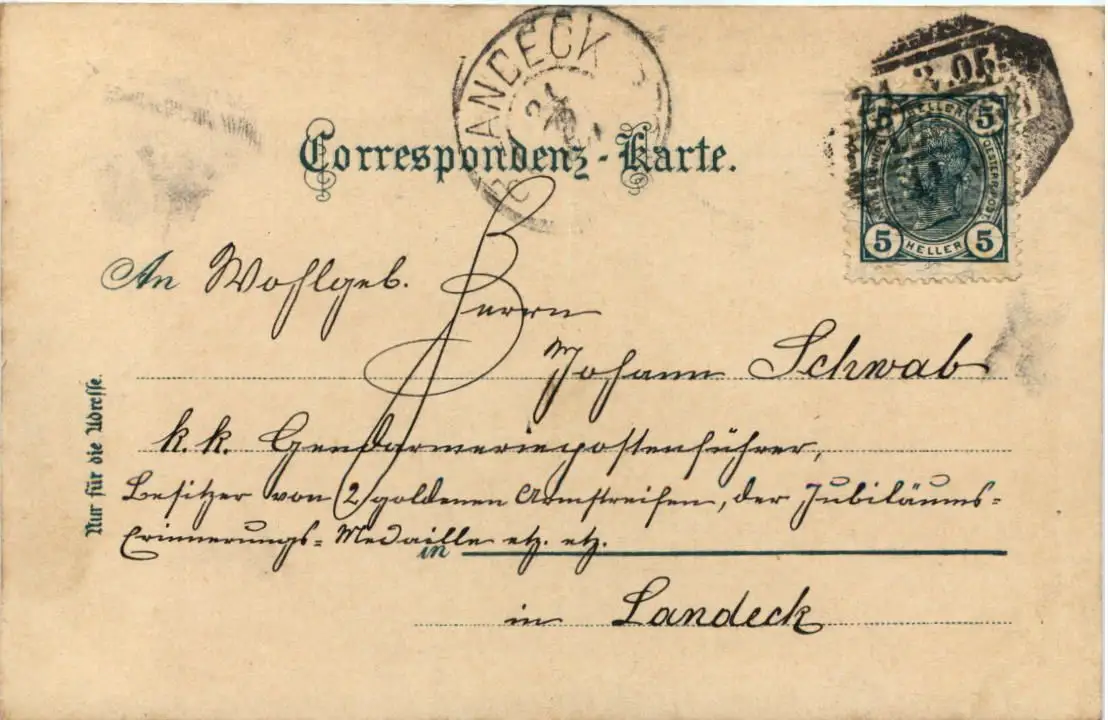 LANDECK
24
24 3 05
5 HELLER 5
5 HELLER 5
Correspondenz-Karte.
An Wohlgeb. Herrn
Johann Schwab
k. k. Gendarmeriepostenführer,
Besitzer von 2 goldenen Armstreifen, der Jubiläums-
Erinnerungs-Medaille etz. etz.
in
in Landeck
Nur für die Adresse.